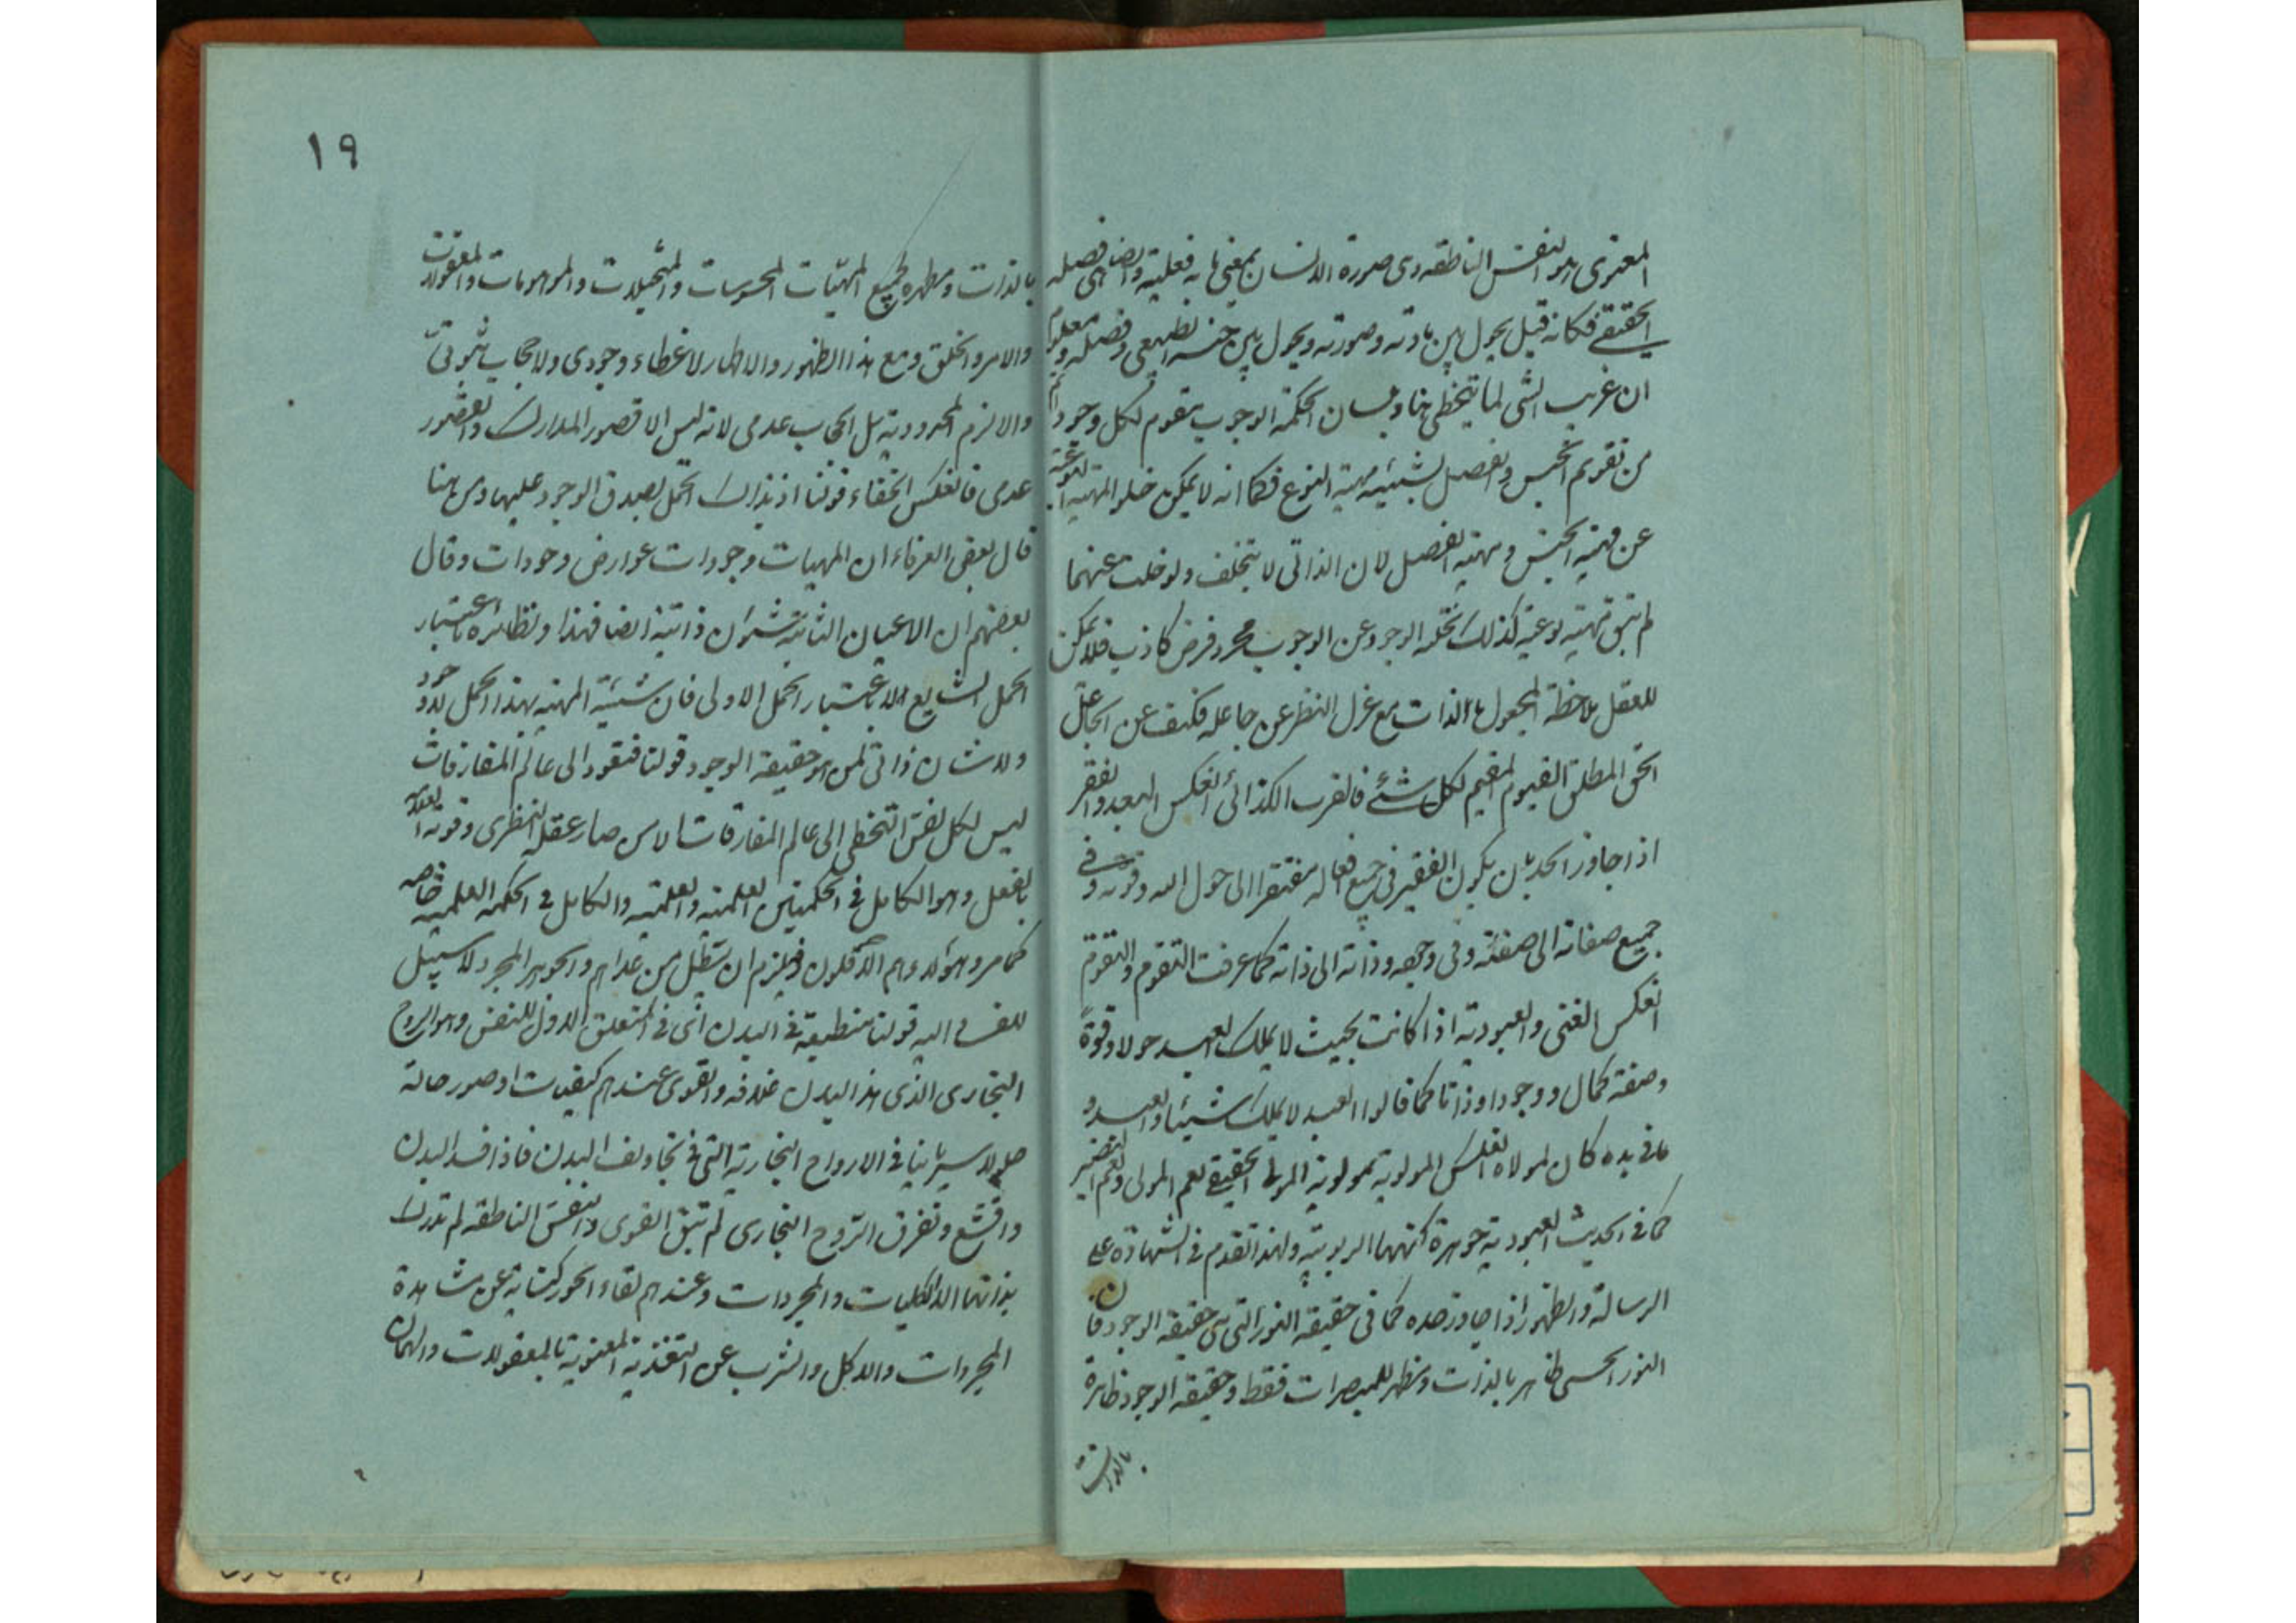 المعنوى هو النفس الناطقه وهى صورة الانسان بمعنى ما به فعليته وايضا هى فصله
الحقيقى فكانه قيل يحول بين مادته وصورته ويحول بين جنسه الطبيعى وفصله ومعلوم
ان غريب الشى لما يتخطى هنا وبلسان الحكمة الوجوب مقوم لكل وجود اتم
من تقويم الجنس والفصل لشيئية مهية النوع فكما انه لا يمكن خلو المهية النوعية
عن مهية الجنس ومهية الفصل لان الذاتى لا يتخلف ولو خلت عنهما
لم تبق مهية نوعية كذلك تخلية الوجود عن الوجوب مجرد فرض كاذب فلا يمكن
للعقل ملاحظة المجعول بالذات مع عزل النظر عن جاعله فكيف عن الجاعل
الحق المطلق القيوم المقيم لكل شئ فالقرب الكذائى انعكس البعد والفقر
اذا جاوز الحد بان يكون الفقير فى جميع افعاله مفتقرا الى حول الله وقوته وفى
جميع صفاته الى صفته وفى وجهه وذاته الى ذاته كما عرفت التقوم والتقوم
انعكس الغنى والعبودية اذا كانت بحيث لا يملك العبد حولا وقوة
وصفة كمال ووجودا وذاتا كما قالوا العبد لا يملك شيئا والعبد و
ما فى يده كان لمولاه انعكس المولوية بمولوية المولى الحقيقى نعم المولى ونعم النصير
كما فى الحديث العبودية جوهرة كنهها الربوبية ولهذا تقدم فى الشهادة على
الرسالة والظهور اذا جاوز حده كما فى حقيقة النور التى هى حقيقة الوجود فان
النور الحسى ظاهر بالذات ومظهر للمبصرات فقط وحقيقة الوجود ظاهرة
بالذات
١٩
بالذات ومظهرة لجميع المهيات المحسوسات والمتخيلات والموهومات والمعقولات
والامر والخلق ومع هذا الظهور والاظهار لا غطاء وجودى ولا حجاب ثبوتى
والا لزم المحدودية بل الحجاب عدمى لانه ليس الا قصور المدارك والقصور
عدمى فانعكس الخفاء قولنا اذ بذلك الحمل يصدق الوجود عليها ومن هنا
قال بعض العرفاء ان المهيات وجودات عوارض وجودات وقال
بعضهم ان الاعيان الثابتة شئون ذاتية ايضا فهذا ونظائره باعتبار
الحمل الشايع لا باعتبار الحمل الاولى فان شيئية المهية بهذا الحمل لا وجود
ولا شان ذاتى لمن هو حقيقة الوجود قولنا فتقود الى عالم المفارقات
ليس لكل نفس التخطى الى عالم المفارقات الا من صار عقله النظرى وقوته العقلية
بالفعل وهو الكامل فى الحكمتين العلمية والعملية والكامل فى الحكمة العلمية خاصه
كما مر وهؤلاء هم الاقلون فيلزم ان يبطل من عداهم والجوهر المجرد لا سبيل
للفساد اليه قولنا منطبعة فى البدن اى فى المتعلق الاول للنفس وهو الروح
البخارى الذى هذا البدن غلافه والقوى عندهم كيفيات او صور حالة
حلولا سريانيا فى الارواح البخارية التى فى تجاويف البدن فاذا فسد البدن
وانقشع وتفرق الروح البخارى لم تبق القوى والنفس الناطقه لم تدرك
بذاتها الا الكليات والمجردات وعندهم لقاء الحور كناية عن مشاهدة
المجردات والاكل والشرب عن التغذية المعنوية بالمعقولات والهمان